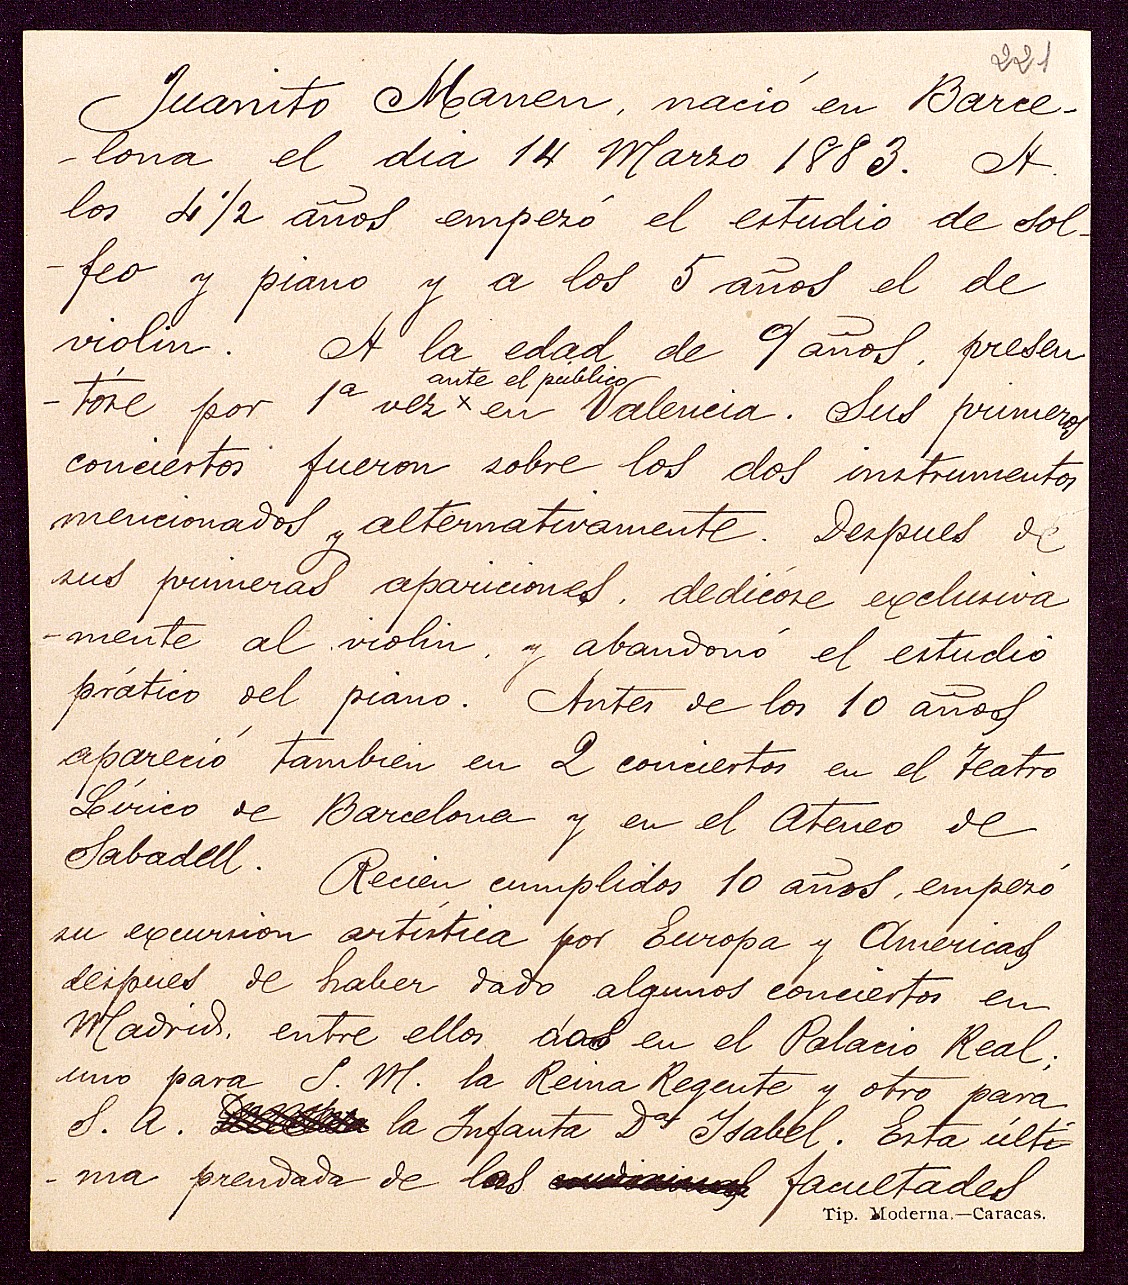 221
Juanito Manen, nació en Barce-
-lona el dia 14 Marzo 1883. A
los 4 1/2 años empezó el estudio de sol-
-feo y piano y a los 5 años el de
violin. A la edad de 9 años, presen
-tóse por 1ª vez x en Valencia. Sus primeros
ante el público
conciertos fueron sobre los dos instrumentos
mencionados y alternativamente. Despues de
sus primeras apariciones, dedicóse exclusiva
-mente al violin, y abandonó el estudio
prático del piano. Antes de los 10 años
apareció tambien en 2 conciertos en el Teatro
Lírico de Barcelona y en el Ateneo de
Sabadell. Recien cumplidos 10 años, empezó
su excursion artística por Europa y Americas
despues de haber dado algunos conciertos en
Madrid, entre ellos dos en el Palacio Real;
uno para S. M. la Reina Regente y otro para
S. A. la Infanta Dª Isabel. Esta últi
-ma prendada de las facultades
Tip. Moderna.—Caracas.